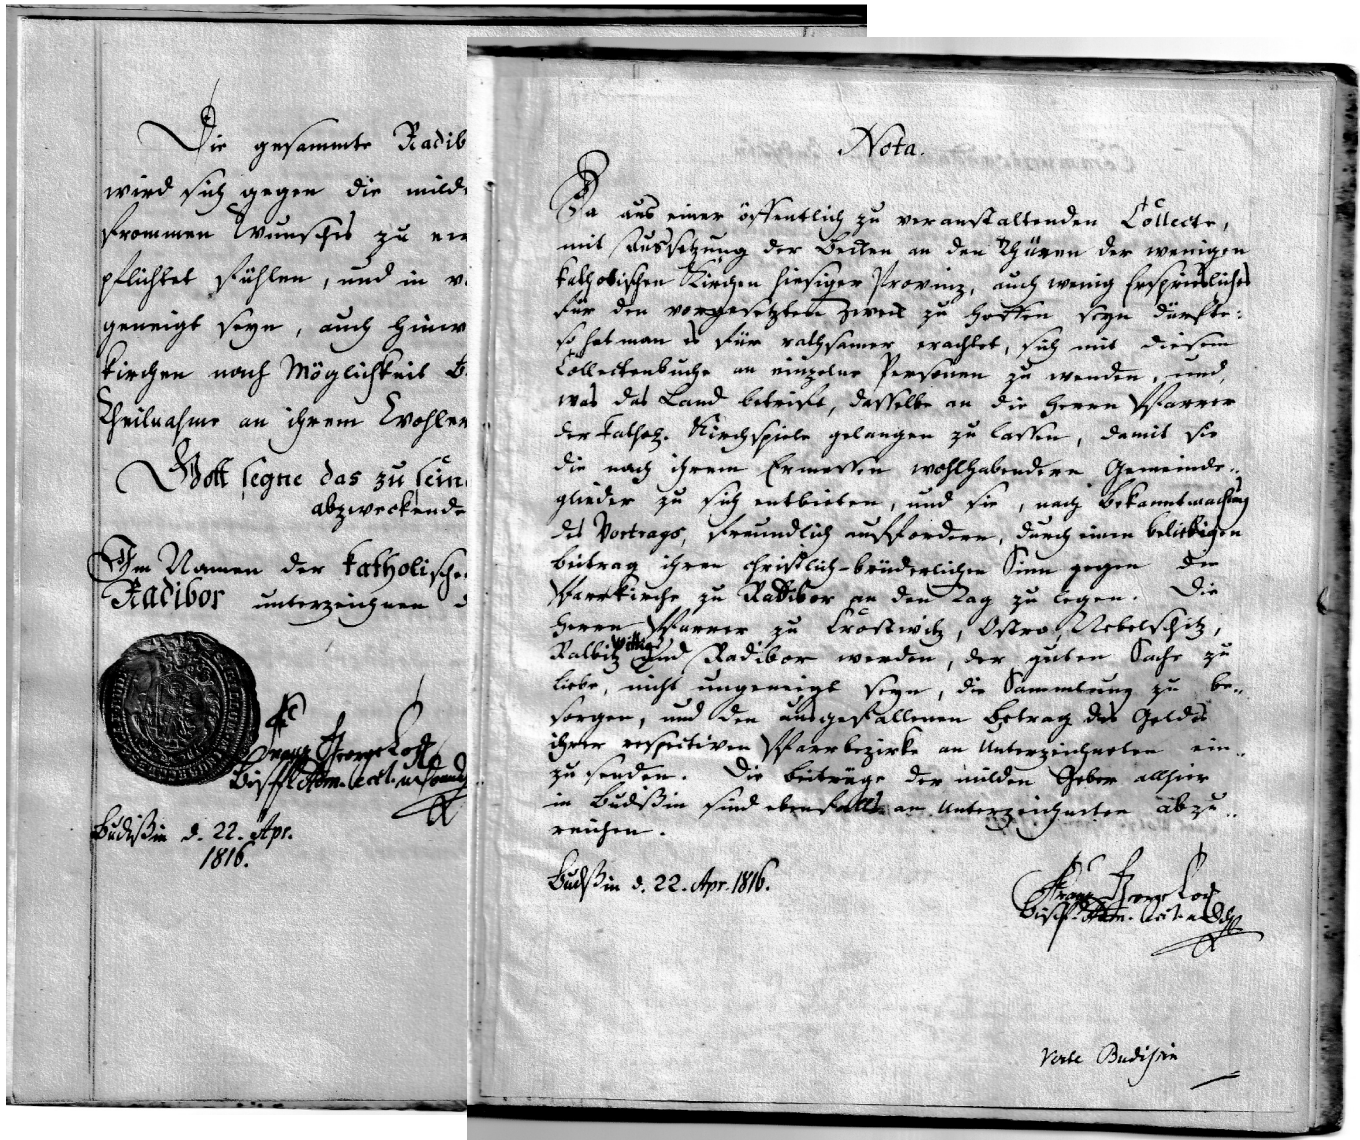 Die gesammte Radib
wird sich gegen die milde
frommen Wunsches zu
pflichtet fühlen, und in
geneigt seyn, auch hinw
Kirchen nach Möglichkeit
Theilnahme an ihrem Wohler
Gott segne das zu sein
abzweckende
Im Namen der katholische
Radibor unterzeichnen
Franz George Lock
Bischfl. Adm. eccl.
Budißin d. 22. Apr.
1816.
Nota.
Da aus einer öffentlich zu veranstaltenden Collecte,
mit Aussetzung der Becken an den Thüren der wenigen
katholischen Kirchen hiesiger Provinz, auch wenig Ersprießliches
für den vorgesetzten Zweck zu hoffen seyn dürfte:
so hat man es für rathsamer erachtet, sich mit diesem
Collectenbuche an einzelne Personen zu wenden, und,
was das Land betrift, dasselbe an die Herrn Pfarrer
der kathol. Kirchspiele gelangen zu lassen, damit sie
die nach ihrem Ermessen wohlhabendern Gemeinde-
glieder zu sich entbieten, und sie, nach Bekanntmachung
des Vortrags, freundlich auffordern, durch einen beliebigen
Beitrag ihren christlich-brüderlichen Sinn gegen die
Pfarrkirche zu Radibor an den Tag zu legen. Die
Herrn Pfarrer zu Crostwitz, Ostro, Nebelschitz,
Ralbitz und Radibor werden, der guten Sache zu
liebe, nicht ungeneigt seyn, die Sammlung zu be-
sorgen, und den ausgefallenen Betrag des Geldes
ihrer respectiven Pfarrbezirke an Unterzeichneten ein-
zusenden. Die Beiträge der milden Geber allhier
in Budißin sind ebenfalls an Unterzeichneten abzu-
reichen.
Budißin d. 22. Apr. 1816.
Franz George Lock
Bischfl. Adm. eccl.
Verte Budißin